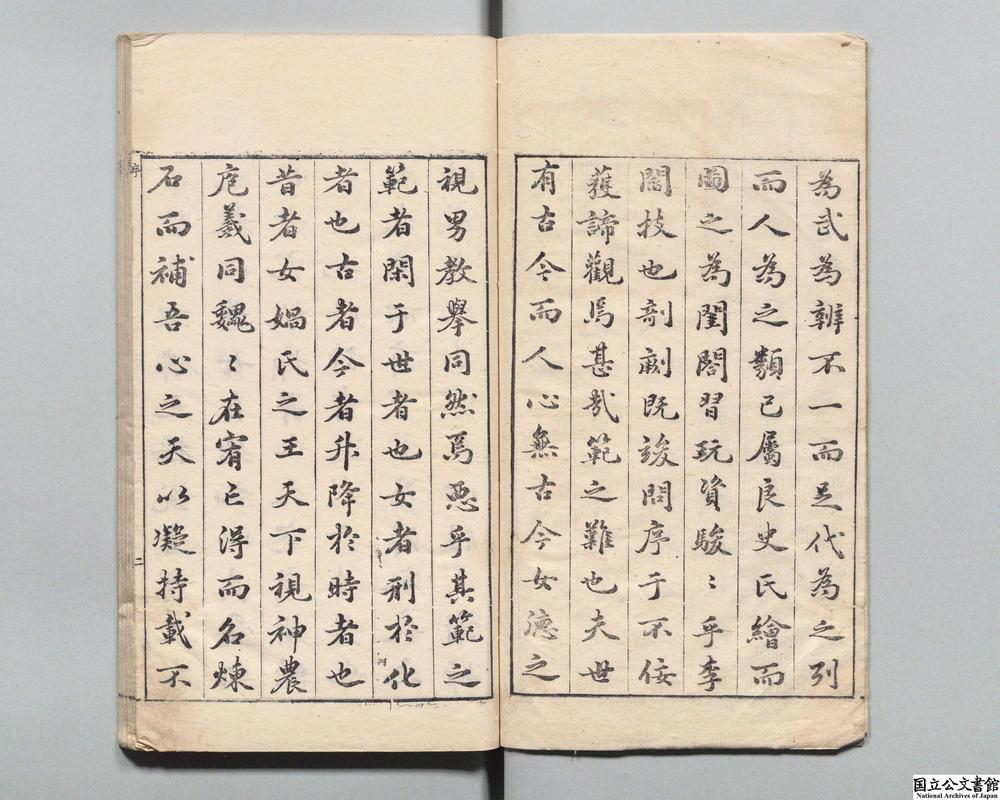 為武為辨不一而足代為之列
而人為之類已屬良史氏繪而
圖之為閨閤習玩資駸〻乎李
閻技也剞劂既竣問序于不佞
蒦諦觀焉甚哉範之難也夫世
有古今而人心無古今女德之
視男教舉同然焉惡乎其範之
範者閑于世者也女者刑於化
者也古者今者升降於時者也
昔者女媧氏之王天下視神農
庖羲同巍〻在宥已得而名煉
石而補吾心之天以凝持載不
序
二
国立公文書館
National Archives of Japan